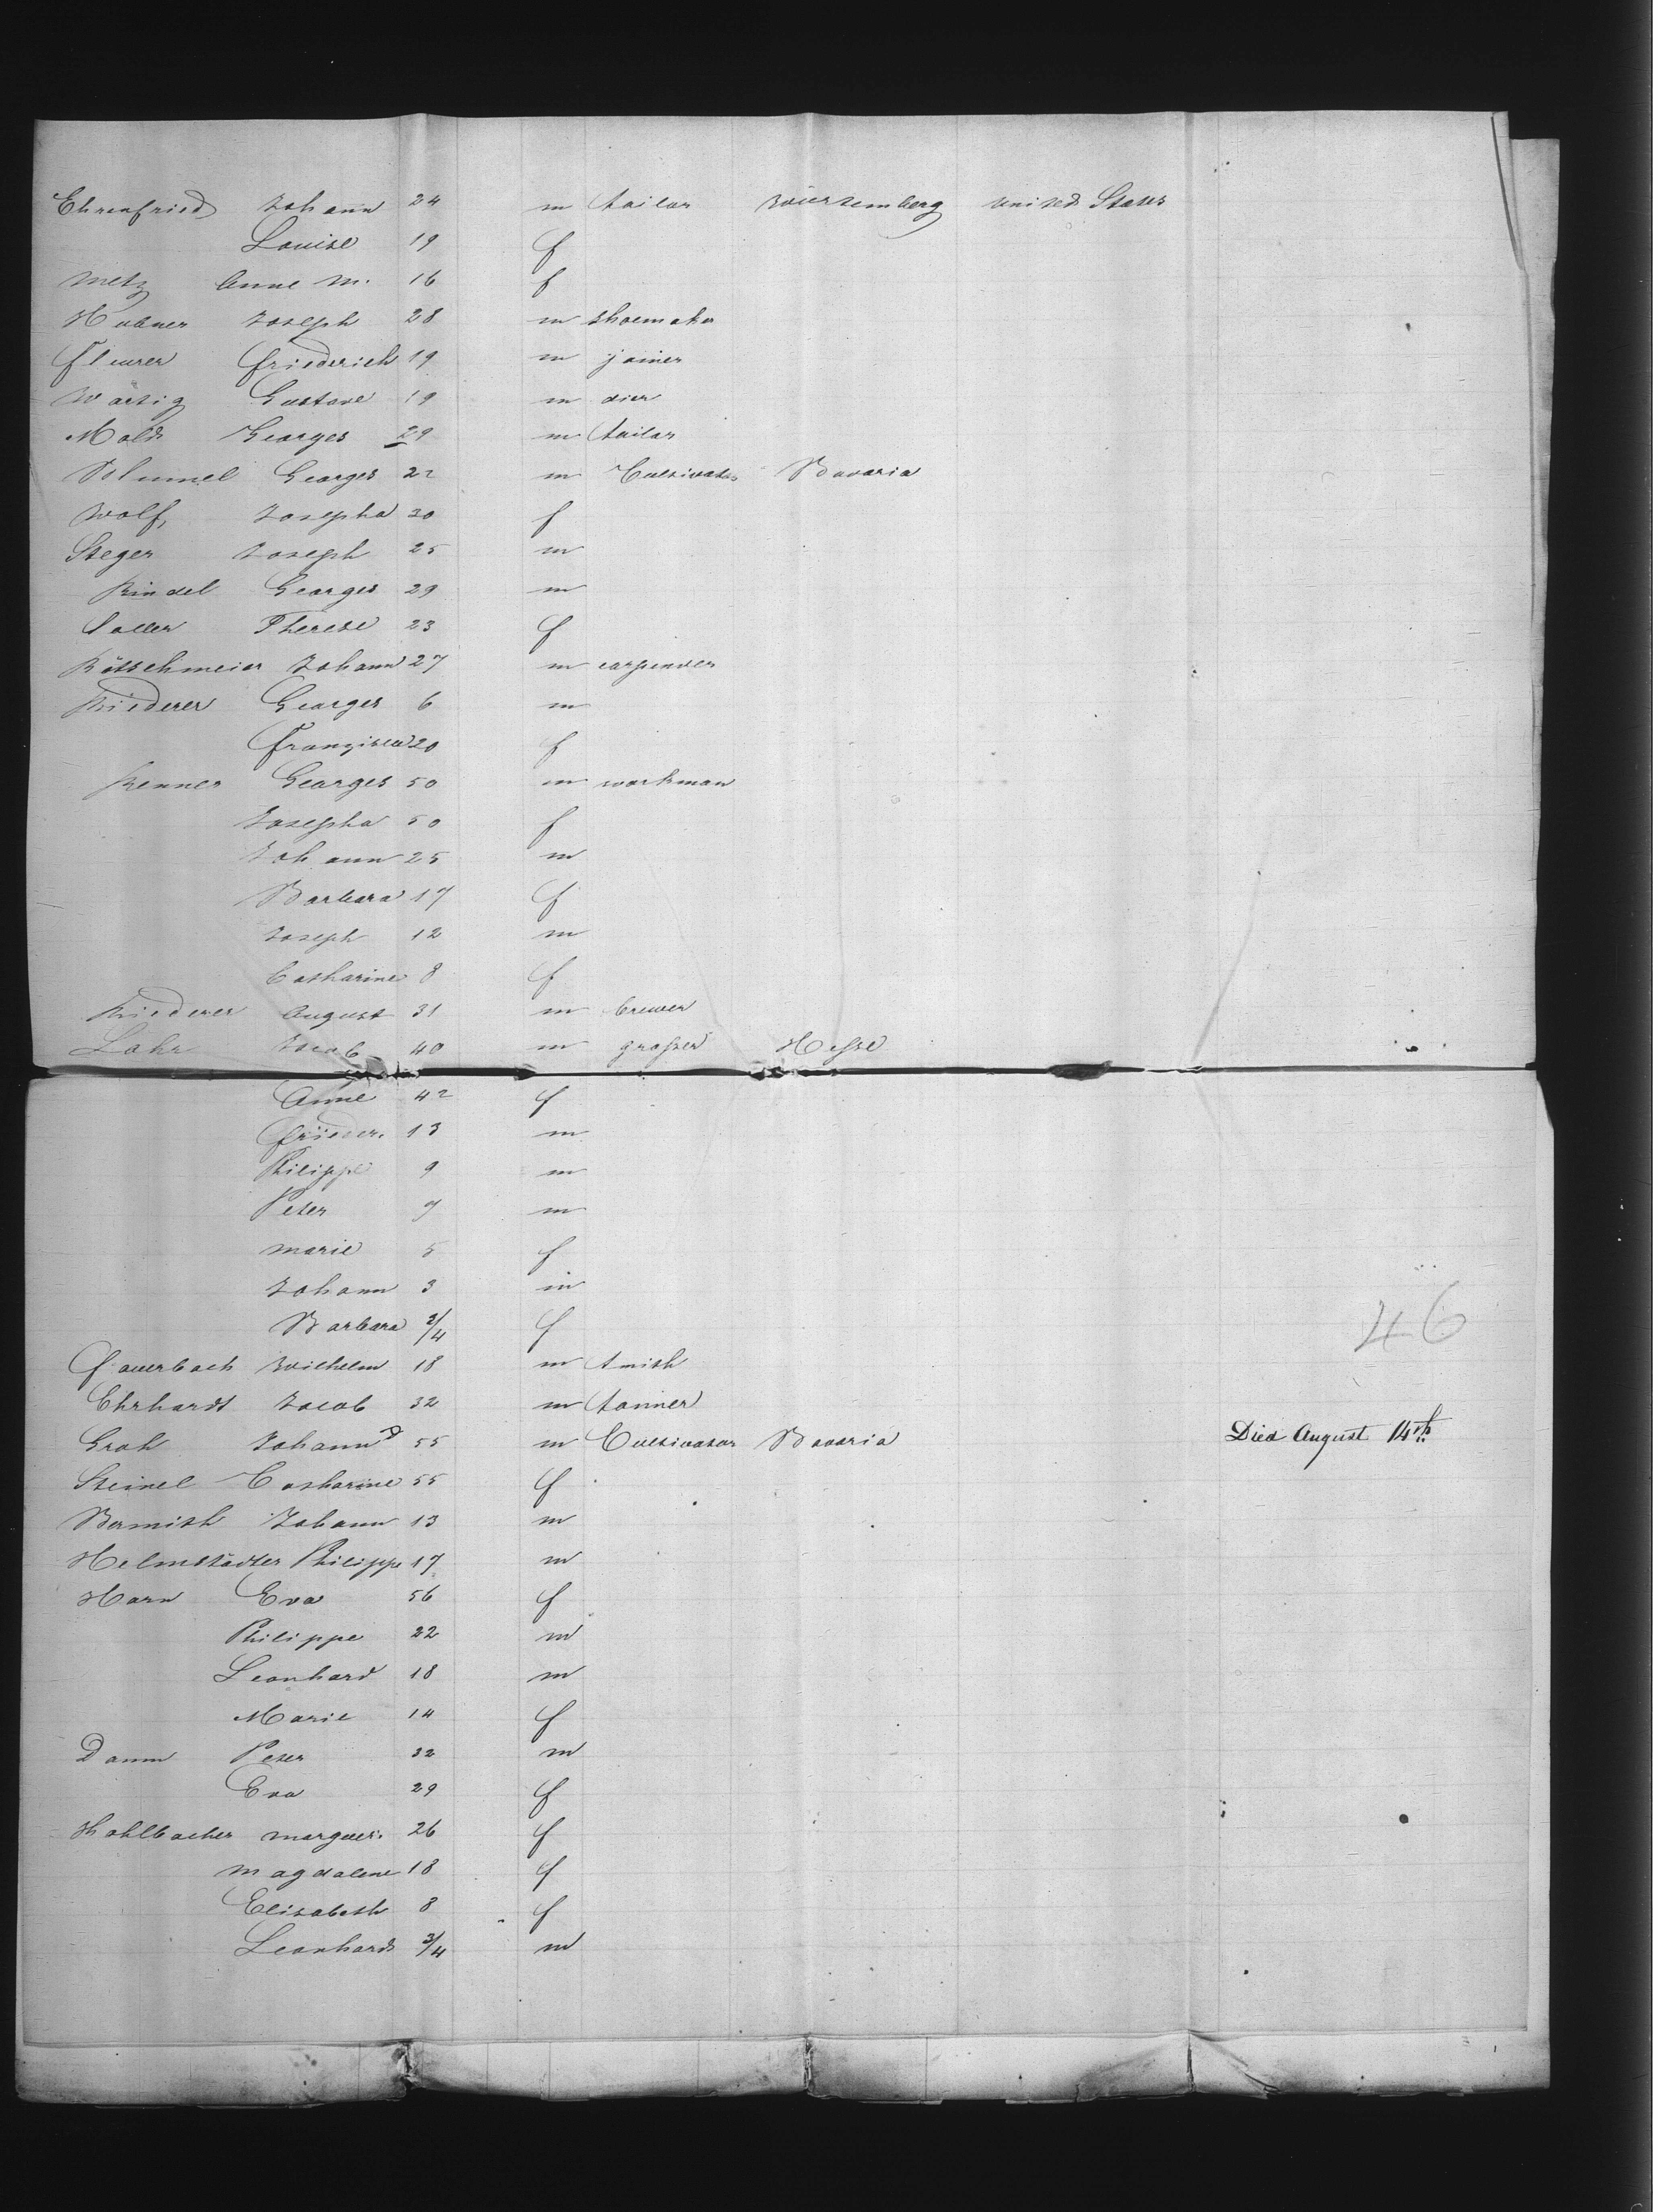 Ehrenfried Johann 24 m tailor Würtemberg United States
Louise 19 f
Metz Anne M. 16 f
Hubner Joseph 28 m shoemaker
Fleurer Friederich 19 m joiner
Wärtig Gustave 19 m dier
Mold Georges 29 m tailor
Blumel Georges 22 m Cultivator Bavaria
Wolf, Josepha 20 f
Steger Joseph 25 m
Rindel Georges 29 m
Therese 23 f
Rötschmeier Johann 27 m carpenter
Riederer Georges 6 m
Franzisca 20 f
Renner Georges 50 m workman
Josepha 50 f
Johann 25 m
Barbara 17 f
Joseph 12 m
Catharine 8 f
Riederer August 31 m brewer
Lahr Jacob 40 m Hesse
Anne 42 f
Frieder. 13 m
Philippe 9 m
Peter 7 m
Marie 5 f
Johann 3 m
Barbara 3/4 f
46
Fauerbach Wilhelm 18 m smith
Ehrhardt Jacob 32 m tanner
Groh Johann D 55 m Cultivator Bavaria Died August 14th
Steinel Catharine 55 f
Johann 13 m
Helmstädter Philippe 17 m
Horn Eva 56 f
Philippe 22 m
Leonhard 18 m
Marie 14 f
Damm Peter 32 m
Eva 29 f
Kohlbacher Marguer. 26 f
Magdalene 18 f
Elisabeth 8 f
Leonhard 3/4 m